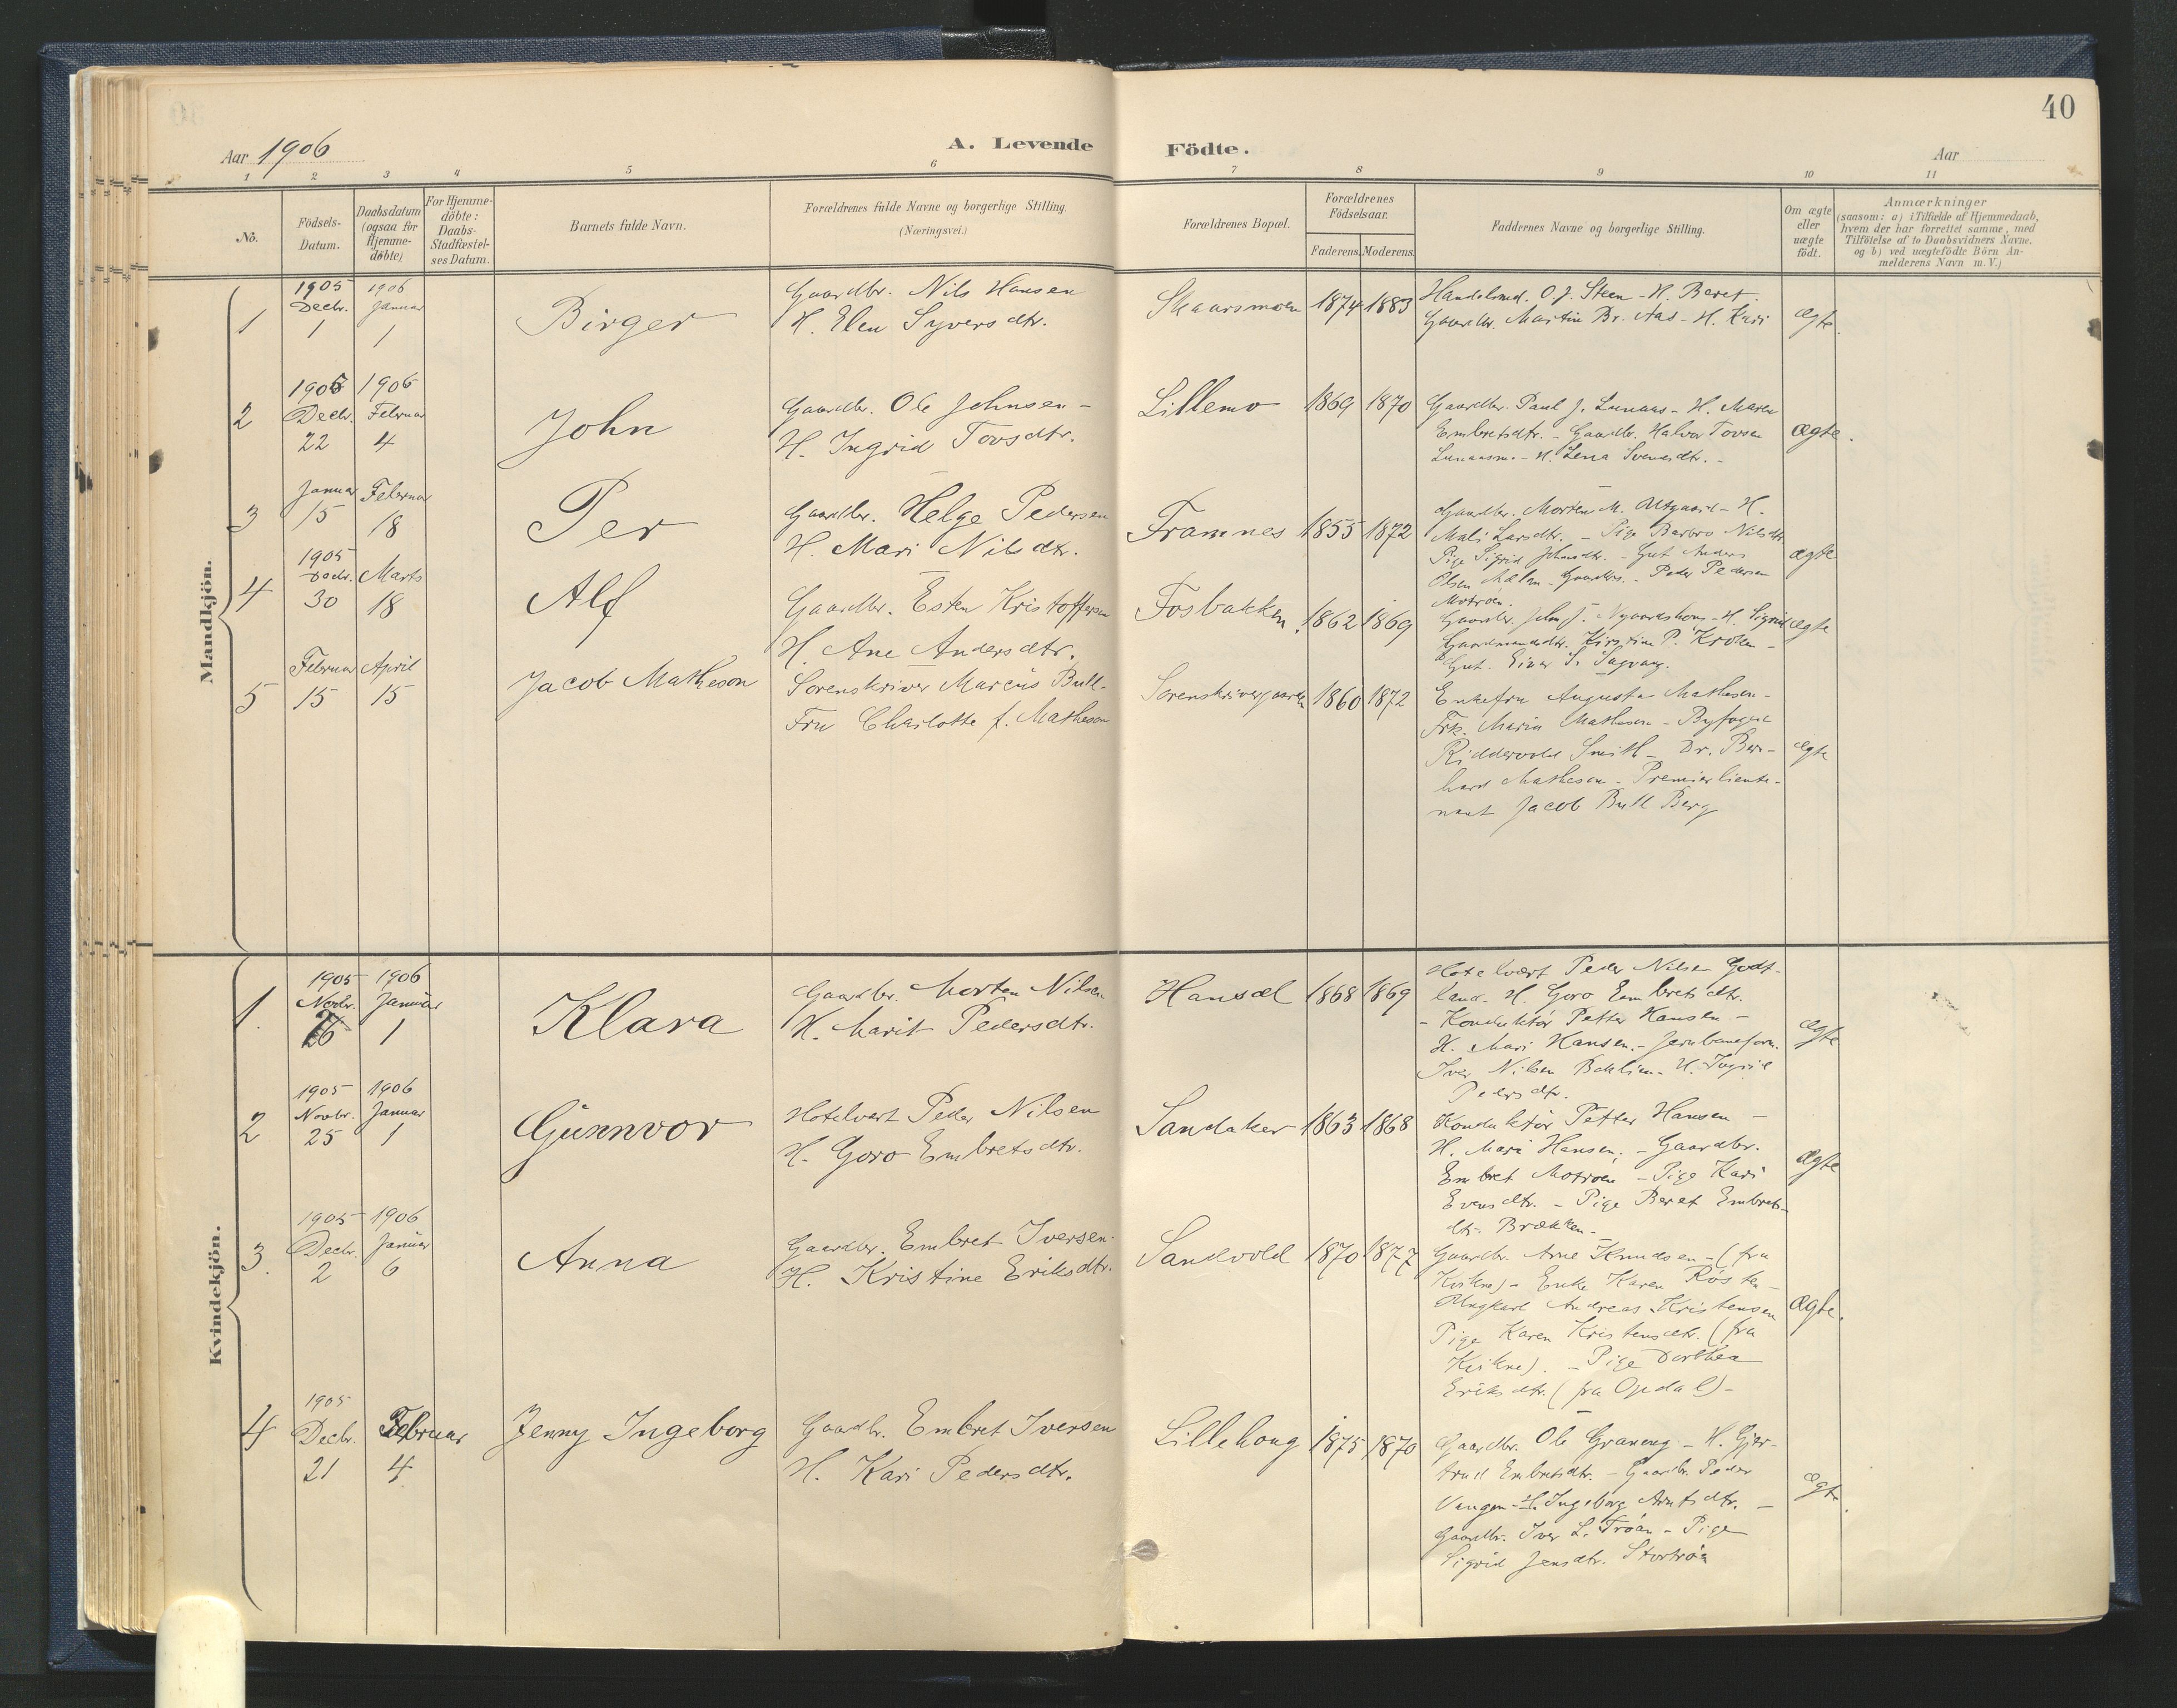 40
Aar 1906
A. Levende Födte.
Aar
1 2 3 4 5 6 7 8 9 10 11
No.
Födsels-
Datum.
Daabsdatum
(ogsaa for
Hjemme-
döbte)
For Hjemme-
döbte:
Daabs-
Stadfæstel-
ses Datum.
Barnets fulde Navn.
Forældrenes fulde Navne og borgerlige Stilling.
(Næringsvei.)
Forældrenes Bopæl.
Forældrenes
Födselsaar.
Faderens. Moderens.
Faddernes Navne og borgerlige Stilling.
Om ægte
eller
uægte
födt.
Anmærkninger
(saasom: a) i Tilfælde af Hjemmedaab,
hvem der har forrettet samme, med
Tilföielse af to Daabsvidners Navne.
og b) ved uægtefödte Börn An-
melderens Navn m. V.)
Mandkjön.
1
1905
Decbr.
1
1906
Januar
1
Birger
Gaardbr. Nils Hansen
H. Elen Syversdtr.
Skaarsmoen
1874 1883
Handelsmd. O. J. Steen - H. Beret
Gaardbr. Martin Br. Aas - H. Kari
ægte.
2
1905
Decbr.
22
1906
Februar
4
John
Gaardbr. Ole Johnsen -
H. Ingrid Tovsdtr.
Lillemo
1869 1870
Gaardbr. Paul J. Lunaas - H. Maren
Embretsdtr. - Gaardbr. Halvor Tovsen
H. Lena
ægte.
3
Januar
15
Februar
18
Per
Gaardbr. Helge Pedersen
H. Mari Nilsdtr.
Framnes
1855 1872
Gaardbr. Morten M. Utgaard - H.
Mali Larsdtr. - Pige Barbro Nilsdtr
Pige Sigrid Johnsdtr. - Gut Anders
Olsen - Gaardbr. - Peder Pedersen
Motröen.
ægte
4
1905
Decbr.
30
Marts
18
Alf
Gaardbr. Esten Kristoffersen
H. Ane Andersdtr.
Fosbakken.
1862 1869
Gaardbr. John J. - H. Sigrid
Kirstine P. Kroken -
Gut. Einar
ægte
5
Februar
15
April
15
Jacob Matheson
Sorenskriver Marcus Bull -
Fru Charlotte f. Matheson
Sorenskrivergaarden
1860 1872
Enkefru Augusta Matheson -
Frk. Maria Matheson - Byfoged
Riddervold Smith - Dr. Bern-
hard Matheson - Premierlieute-
nant Jacob Bull Berg
ægte
Kvindekjön.
1.
1905
Novbr.
26
1906
Januar
1
Klara
Gaardbr. Morten Nilsen
H. Marit Pedersdtr.
Hansæl
1868 1869
Hotelvært Peder Nilsen Godt-
land - H. Goro Embretsdtr.
- Konduktör Petter Hansen -
H. Mari Hansen. - Jernbaneform.
Iver Nilsen - H. Ingrid
Pedersdtr.
ægte
2
1905
Novbr.
25
1906
Januar
1
Gunnvor
Hotelvert Peder Nilsen
H. Goro Embretsdtr.
Sandaker
1863 1868
Konduktör Petter Hansen -
H. Mari Hansen. - Gaardbr.
Embret Motröen - Pige Kari
Evensdtr. - Pige Beret Embrets-
dtr. Brækken -
ægte
3.
1905
Decbr.
2
1906
Januar
6
Anna
Gaardbr. Embret Iversen -
H. Kristine Eriksdtr.
Sandvold
1870 1877
Gaardbr. Arne Knudsen - (fra
Koikne) - Enke Karen Rösten -
Ungkarl Andreas Kristensen
Pige Karen Kristensdtr. (fra
Koikne). - Pige Dorthea
Eriksdtr. (fra Opdal) -
ægte.
4
1905
Decbr.
21
Februar
4
Jenny Ingeborg
Gaardbr. Embret Iversen
H. Kari Pedersdtr.
Lillehaug
1875 1870
Gaardbr. Ole Graneng - H. Gjer-
trud Embretsdtr. - Gaardbr. Peder
Vangen - H. Ingeborg Arntsdtr. -
Gaardbr. Iver L. Tröan - Pige
Sigrid Jensdtr. Stortröa
ægte.